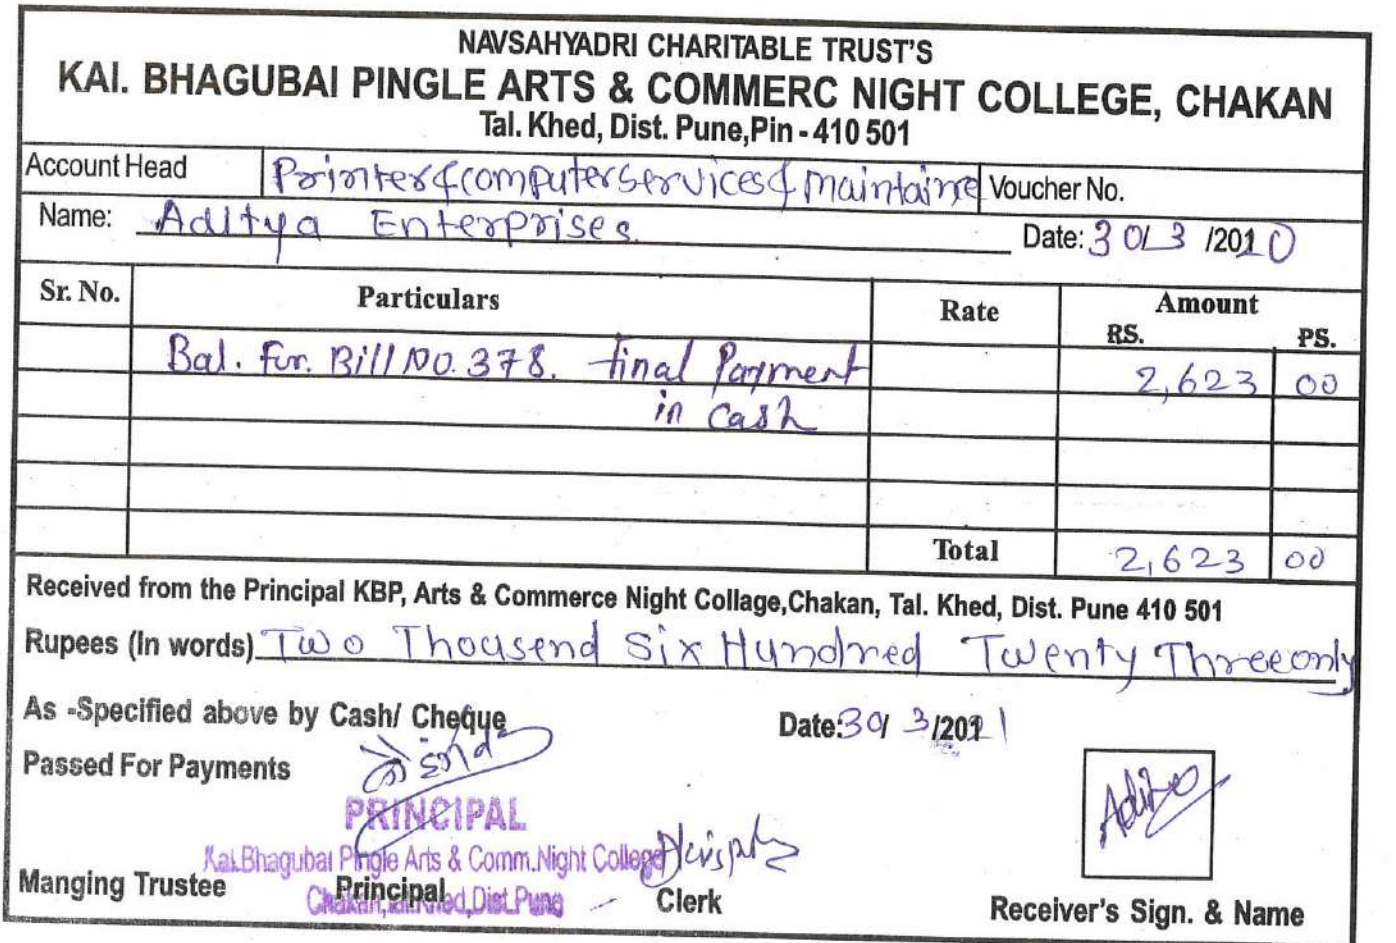 NAVSAHYADRI CHARITABLE TRUST'S
KAI. BHAGUBAI PINGLE ARTS & COMMERC NIGHT COLLEGE, CHAKAN
Tal. Khed, Dist. Pune,Pin - 410 501
Account Head Printer & computer services & maintaine Voucher No.
Name: Aditya Enterprises Date: 30/3/2020
Sr. No. Particulars Rate Amount
RS. PS.
Bal. For. Bill No. 378. final Payment 2,623 00
in cash
Total 2,623 00
Received from the Principal KBP, Arts & Commerce Night Collage,Chakan, Tal. Khed, Dist. Pune 410 501
Rupees (In words) Two Thousend Six Hundred Twenty Three only
As -Specified above by Cash/ Cheque Date:30/3/2021
Passed For Payments
PRINCIPAL
Kai.Bhagubai Pingle Arts & Comm.Night College
Chakan, Tal.Khed,Dist.Pune
Manging Trustee Principal Clerk Receiver's Sign. & Name